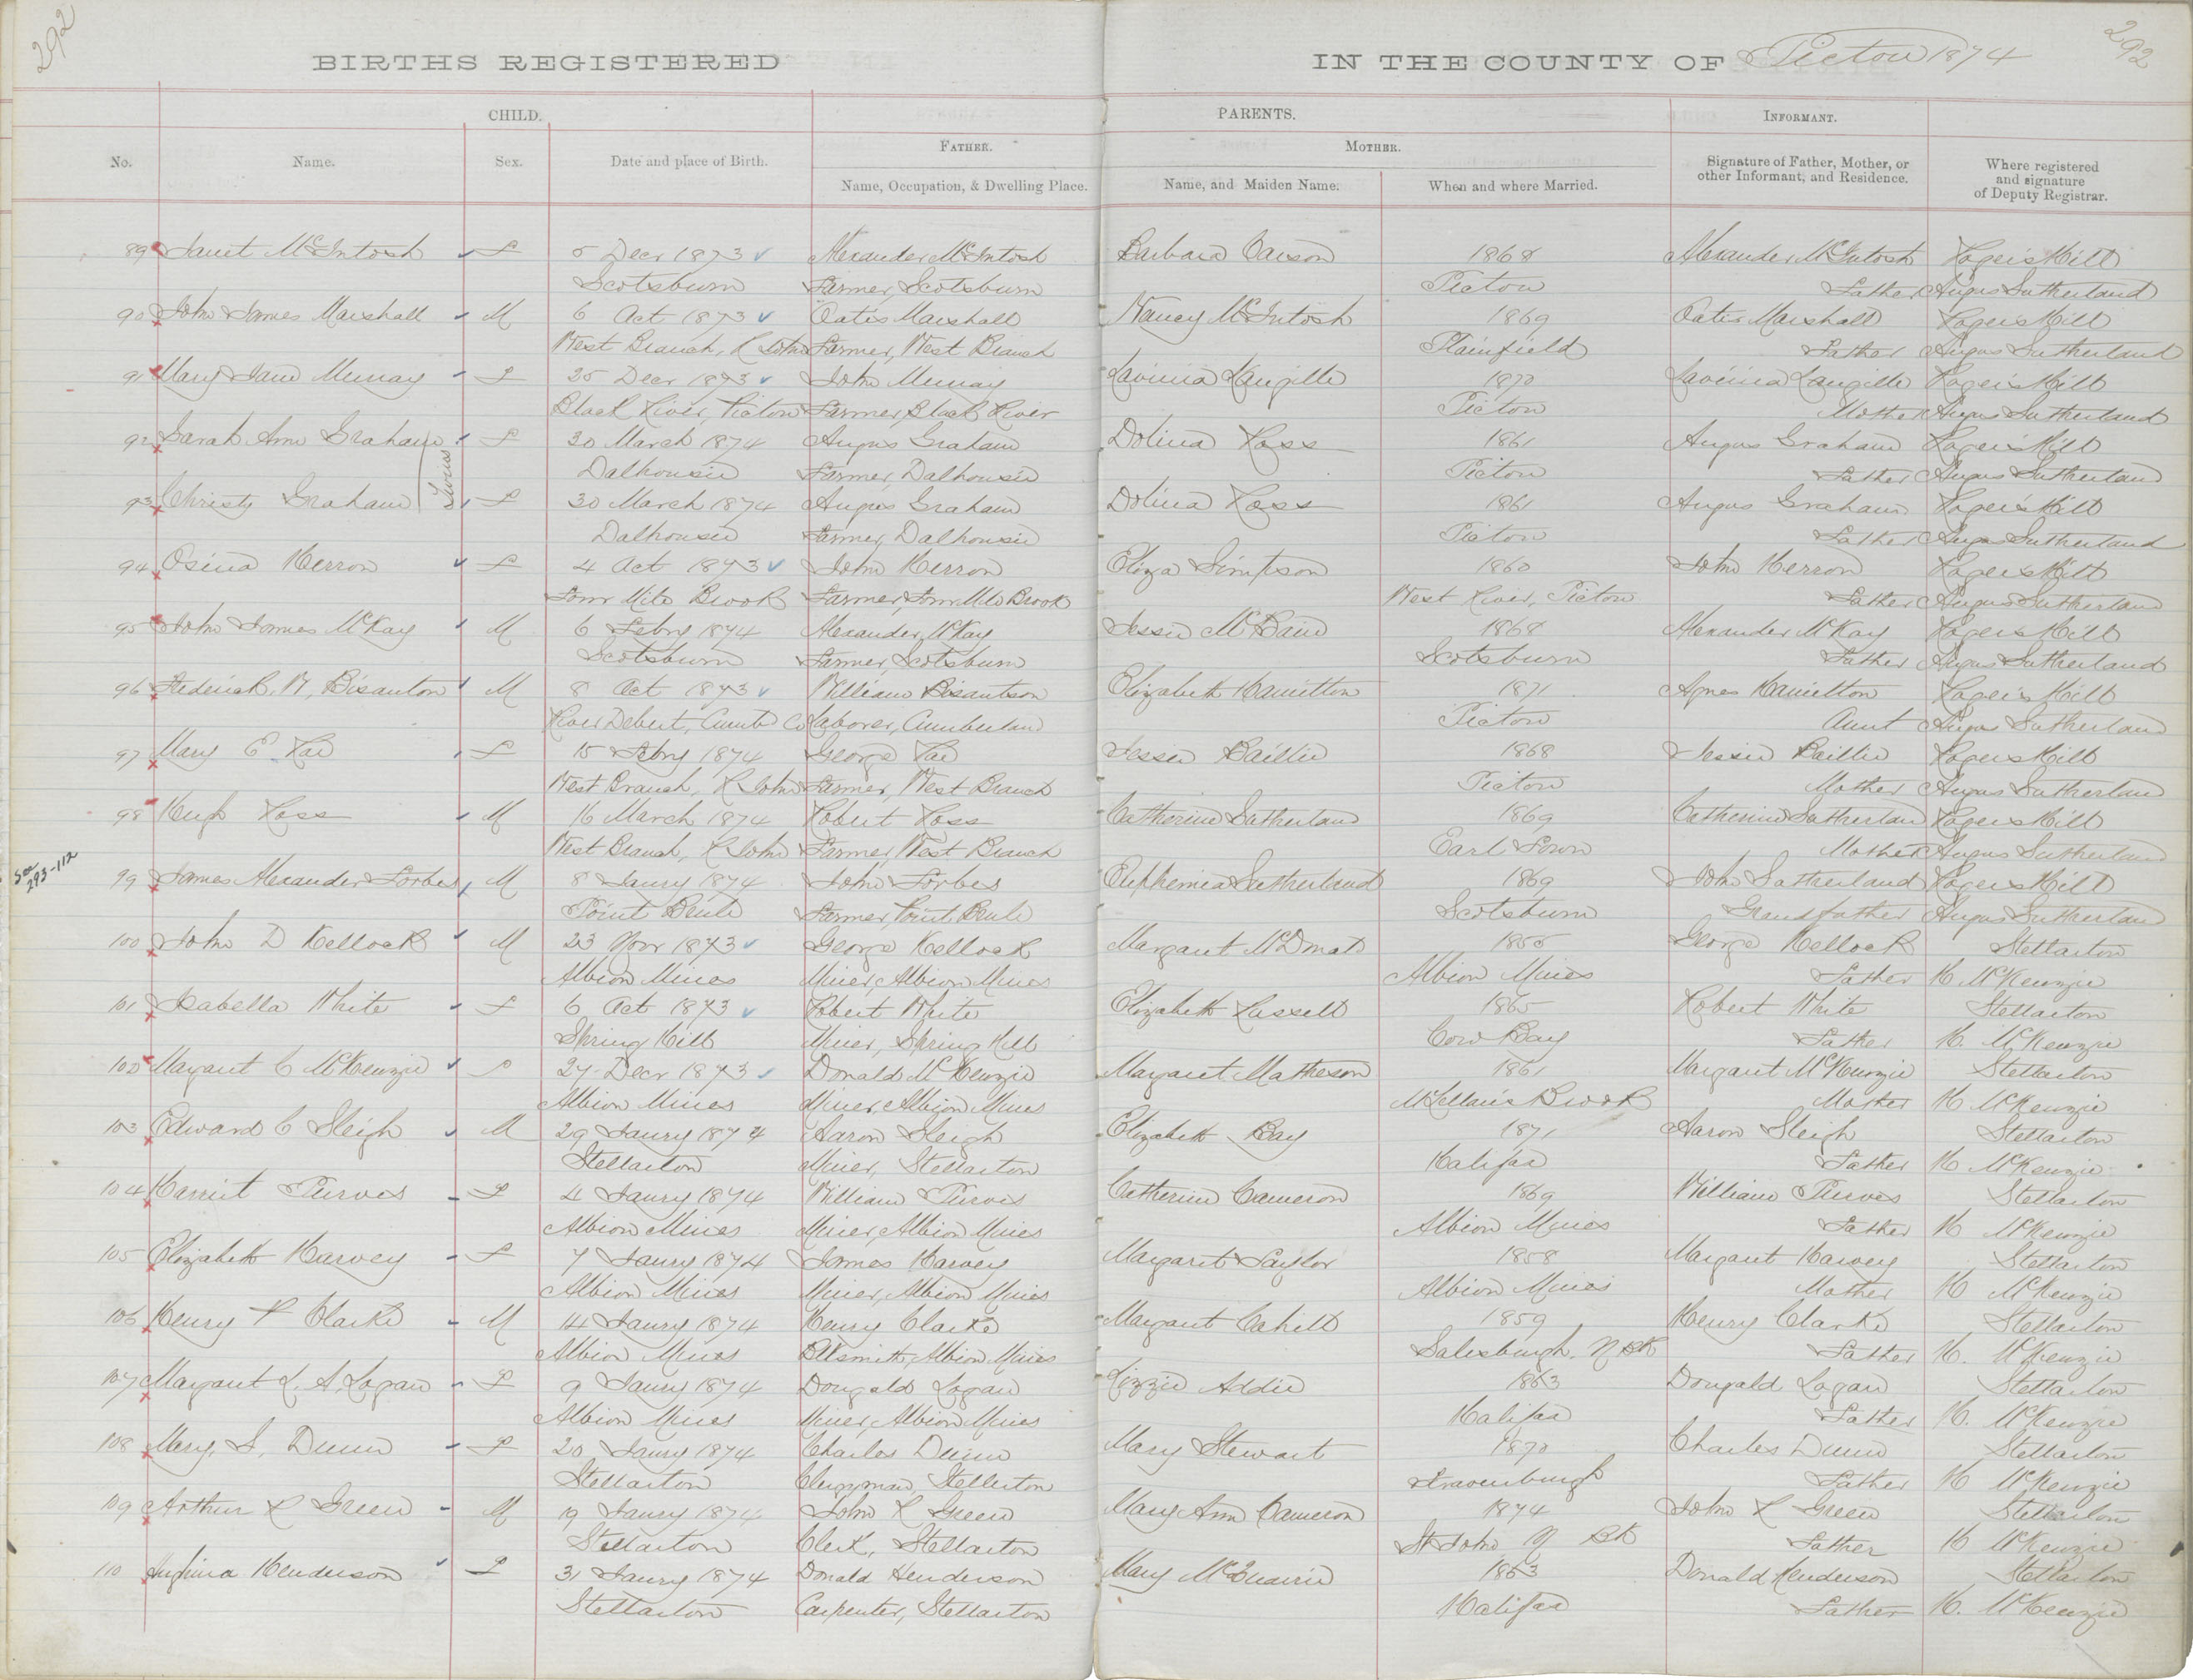 292
292
BIRTHS REGISTERED IN THE COUNTY OF Pictou 1874
CHILD. PARENTS. INFORMANT.
FATHER. MOTHER.
No. Name. Sex. Date and place of Birth. Name, Occupation, & Dwelling Place. Name, and Maiden Name. When and where Married. Signature of Father, Mother, or other Informant, and Residence. Where registered and signature of Deputy Registrar.
89 Janet McIntosh F 5 Decr 1873 Alexander McIntosh Barbara Carson 1868 Alexander McIntosh Rogers Hill
Scotsburn Farmer, Scotsburn Pictou Father Angus Sutherland
90 John James Marshall M 6 Oct 1873 Oates Marshall Nancy McIntosh 1869 Oates Marshall Rogers Hill
West Branch, R John Farmer, West Branch Plainfield Father Angus Sutherland
91 Mary Jane Murray F 25 Decr 1873 John Murray Lavinia Langille 1870 Lavinia Langille Rogers Hill
Black River, Pictou Farmer, Black River Pictou Mother Angus Sutherland
92 Sarah Ann Graham F 30 March 1874 Angus Graham Dolina Ross 1861 Angus Graham Rogers Hill
Twins
Dalhousie Farmer, Dalhousie Pictou Father Angus Sutherland
93 Christy Graham F 30 March 1874 Angus Graham Dolina Ross 1861 Angus Graham Rogers Hill
Dalhousie Farmer, Dalhousie Pictou Father Angus Sutherland
94 Osina Herron F 4 Oct 1873 John Herron Eliza Simpson 1860 John Herron Rogers Hill
Four Mile Brook Farmer, Four Mile Brook West River, Pictou Father Angus Sutherland
95 John James McKay M 6 Febry 1874 Alexander McKay Jessie McBain 1868 Alexander McKay Rogers Hill
Scotsburn Farmer, Scotsburn Scotsburn Father Angus Sutherland
96 Frederick W. Bisanton M 8 Oct 1873 William Bisantson Elizabeth Hamilton 1871 Agnes Hamilton Rogers Hill
River Debert, Cumbd Co Laborer, Cumberland Pictou Aunt Angus Sutherland
97 Mary E. Rae F 15 Febry 1874 George Rae Jessie Baillie 1868 Jessie Baillie Rogers Hill
West Branch, R John Farmer, West Branch Pictou Mother Angus Sutherland
98 Hugh Ross M 16 March 1874 Robert Ross Catherine Sutherland 1869 Catherine Sutherland Rogers Hill
West Branch, R John Farmer, West Branch Earl Town Mother Angus Sutherland
See 293-112
99 James Alexander Forbes M 8 Janry 1874 John Forbes Euphemia Sutherland 1869 John Sutherland Rogers Hill
Point Brule Farmer, Point Brule Scotsburn Grandfather Angus Sutherland
100 John D Kellock M 23 Novr 1873 George Kellock Margaret McDonald George Kellock Stellarton
Albion Mines Miner, Albion Mines Albion Mines Father H McKenzie
101 Isabella White F 6 Oct 1873 Robert White Elizabeth Russell 1865 Robert White Stellarton
Spring Hill Miner, Spring Hill Cow Bay Father H. McKenzie
102 Margaret C McKenzie F 27 Decr 1873 Donald McKenzie Margaret Matheson 1861 Margaret McKenzie Stellarton
Albion Mines Miner, Albion Mines McLellan's Brook Mother H McKenzie
103 Edward C Sleigh M 29 Janry 1874 Aaron Sleigh Elizabeth Bay 1871 Aaron Sleigh Stellarton
Stellarton Miner, Stellarton Halifax Father H McKenzie
104 Harriet Purves F 4 Janry 1874 William Purves Catherine Cameron 1869 William Purves Stellarton
Albion Mines Miner, Albion Mines Albion Mines Father H McKenzie
105 Elizabeth Harvey F 7 Janry 1874 James Harvey Margaret Taylor 1858 Margaret Harvey Stellarton
Albion Mines Miner, Albion Mines Albion Mines Mother H McKenzie
106 Henry P Clarke M 14 Janry 1874 Henry Clarke Margaret Cahill 1859 Henry Clarke Stellarton
Albion Mines Blksmith, Albion Mines Salesburgh, N Bk Father H. McKenzie
107 Margaret L. A. Logan F 9 Janry 1874 Dougald Logan Lizzie Addie 1863 Dougald Logan Stellarton
Albion Mines Miner, Albion Mines Halifax Father H. McKenzie
108 Mary S. Dunn F 20 Janry 1874 Charles Dunn Mary Stewart 1870 Charles Dunn Stellarton
Stellarton Clergyman, Stellerton Father H McKenzie
109 Arthur R Green M 19 Janry 1874 John R Green Mary Ann Cameron 1874 John R Green Stellarton
Stellarton Clerk, Stellarton St John N Bk Father H McKenzie
110 Hughina Henderson F 31 Janry 1874 Donald Henderson Mary McQuarrie 1863 Donald Henderson Stellarton
Stellarton Carpenter, Stellarton Halifax Father H. McKenzie